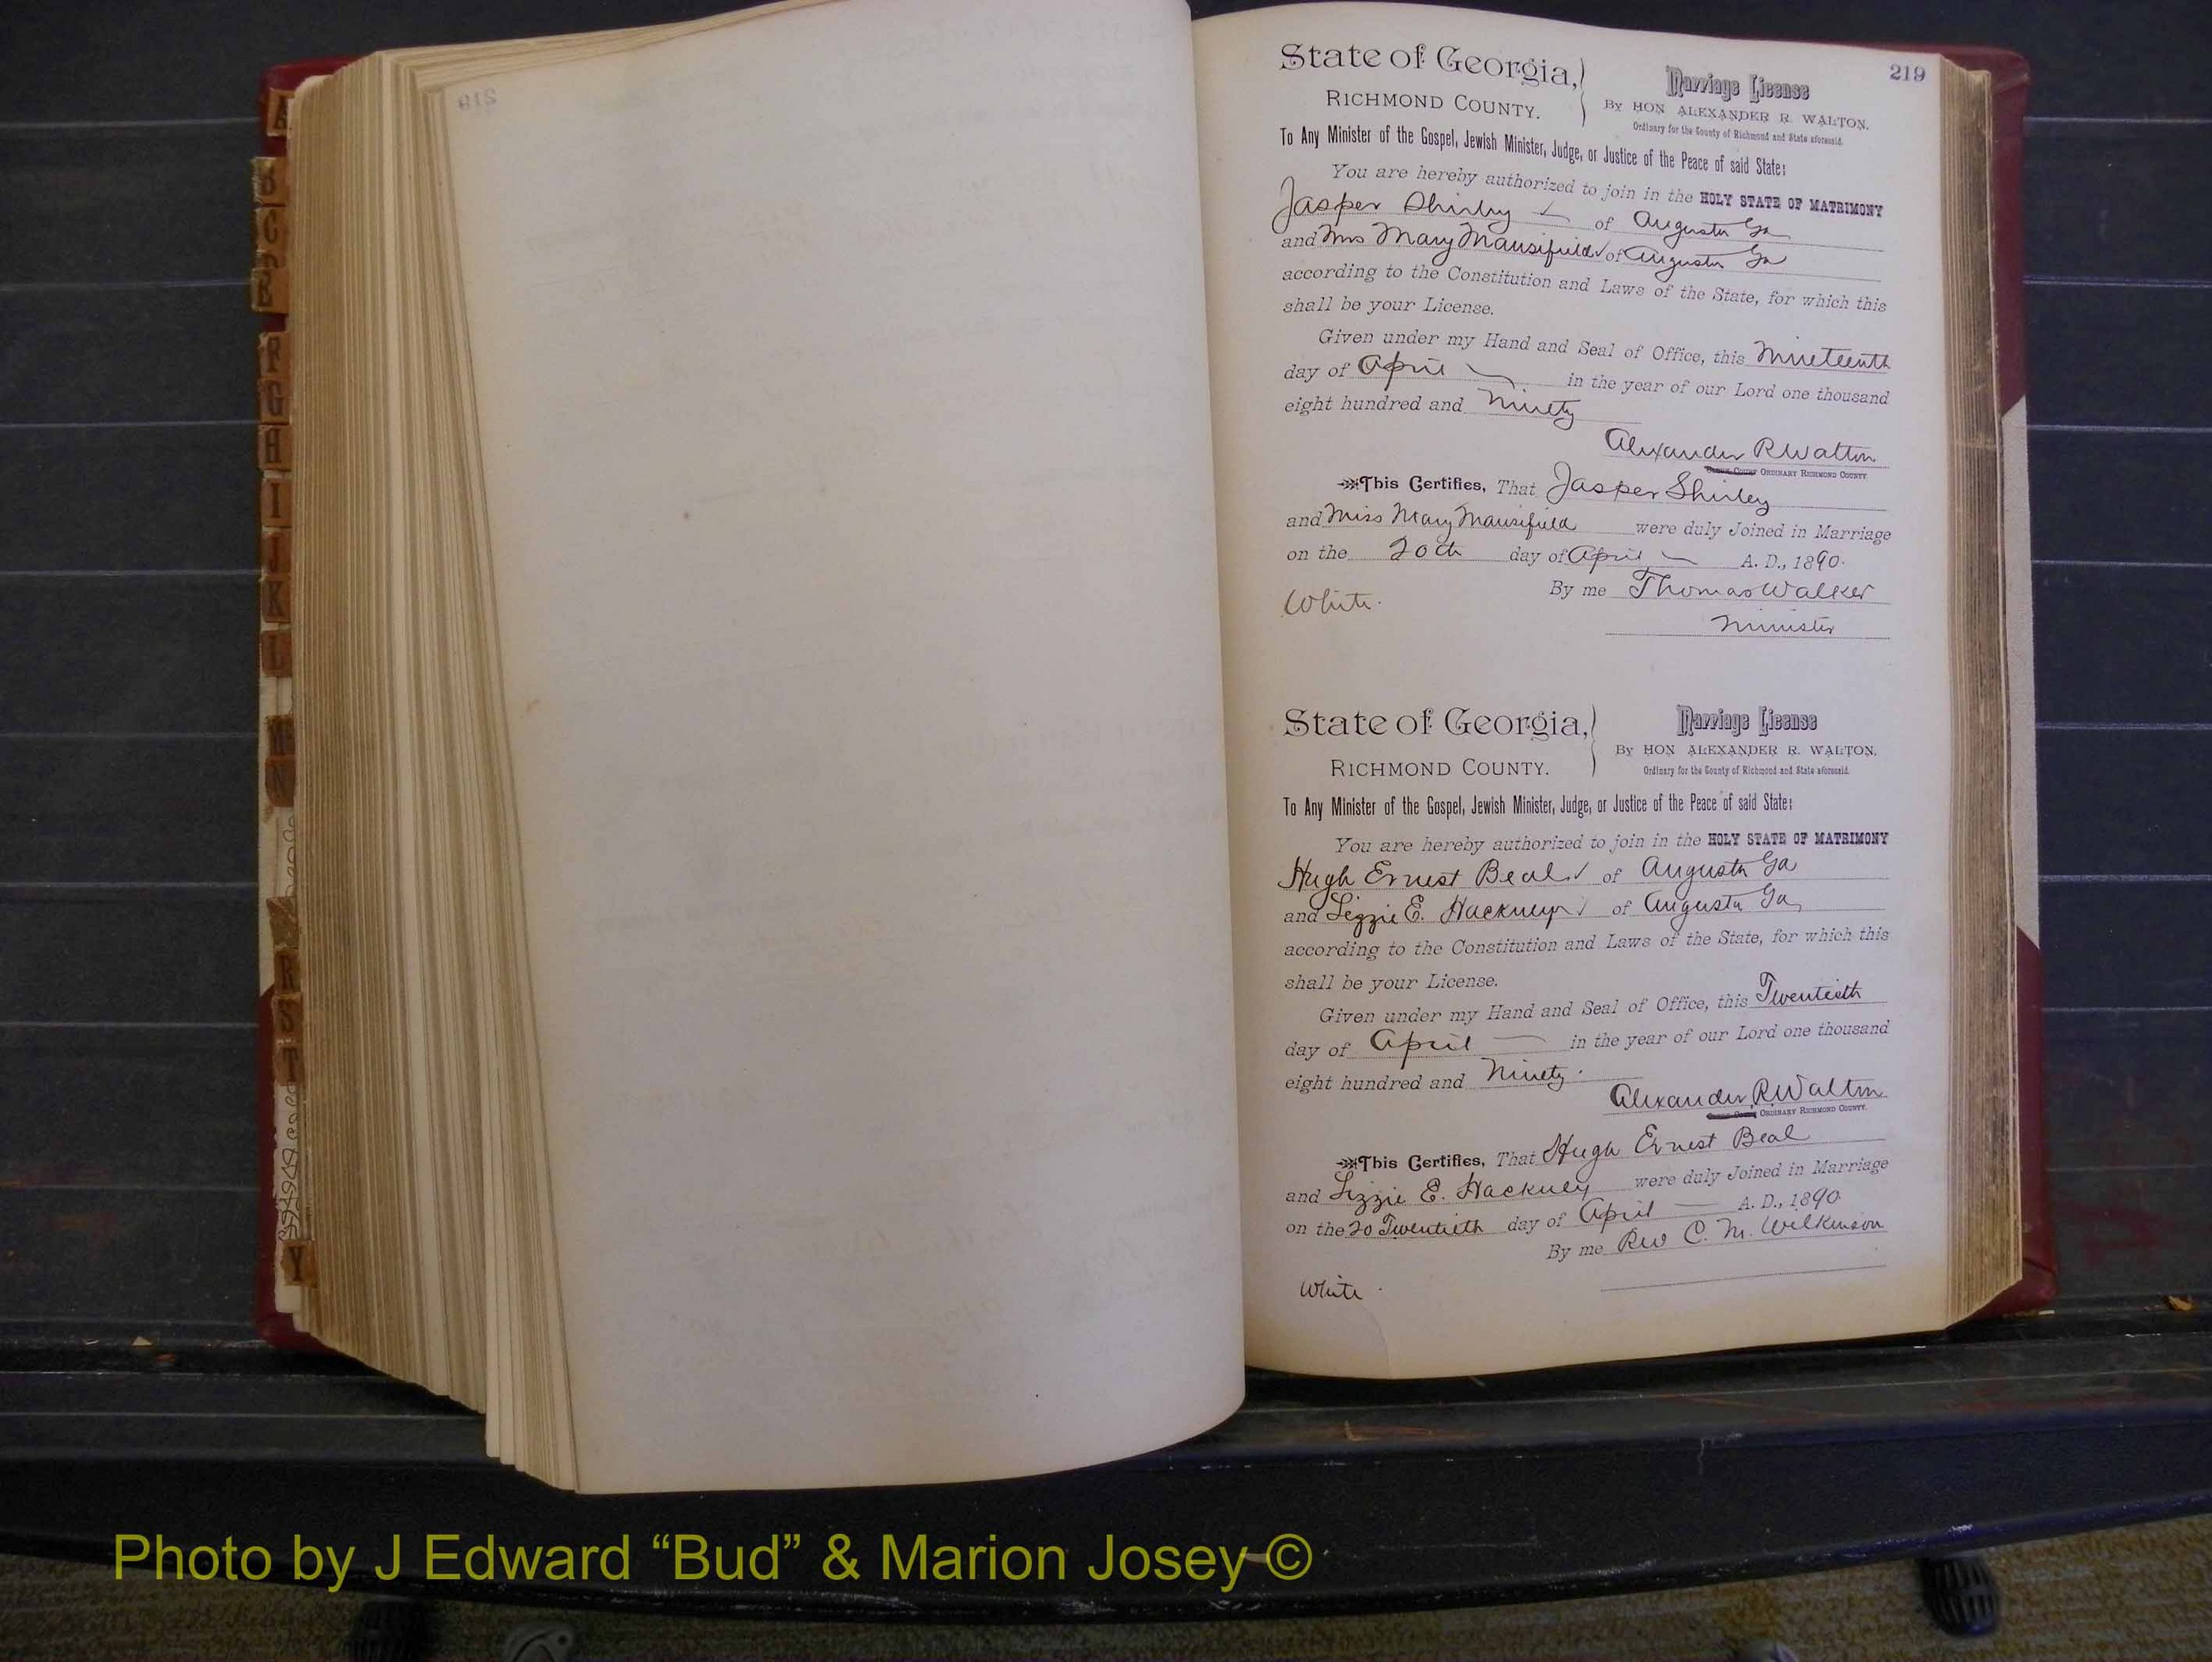 219
State of Georgia,
RICHMOND COUNTY.
Marriage License
By HON ALEXANDER R. WALTON,
Ordinary for the County of Richmond and State aforesaid.
To Any Minister of the Gospel, Jewish Minister, Judge, or Justice of the Peace of said State:
You are hereby authorized to join in the HOLY STATE OF MATRIMONY
Jasper Shirley of Augusta Ga
and Mrs Mary Mausifield of Augusta Ga
according to the Constitution and Laws of the State, for which this
shall be your License.
Given under my Hand and Seal of Office, this Nineteenth
day of April in the year of our Lord one thousand
eight hundred and Ninety
Alexander R Walton
ORDINARY RICHMOND COUNTY
This Certifies, That Jasper Shirley
and Miss Mary Mausifield were duly Joined in Marriage
on the 20th day of April A. D., 1890.
By me Thomas Walker
White.
Minister
State of Georgia,
RICHMOND COUNTY.
Marriage License
By HON ALEXANDER R. WALTON,
Ordinary for the County of Richmond and State aforesaid.
To Any Minister of the Gospel, Jewish Minister, Judge, or Justice of the Peace of said State:
You are hereby authorized to join in the HOLY STATE OF MATRIMONY
Hugh Ernest Beal of Augusta Ga
and Lizzie E. Hackney of Augusta Ga,
according to the Constitution and Laws of the State, for which this
shall be your License.
Given under my Hand and Seal of Office, this Twentieth
day of April in the year of our Lord one thousand
eight hundred and Ninety.
Alexander R Walton
ORDINARY RICHMOND COUNTY.
This Certifies, That Hugh Ernest Beal
and Lizzie E. Hackney were duly Joined in Marriage
on the 20 Twentieth day of April A. D., 1890.
By me Rev C. M. Wilkinson
White.
B
C
F
G
H
I
J
K
L
M
N
R
S
T
Y
Photo by J Edward “Bud” & Marion Josey ©